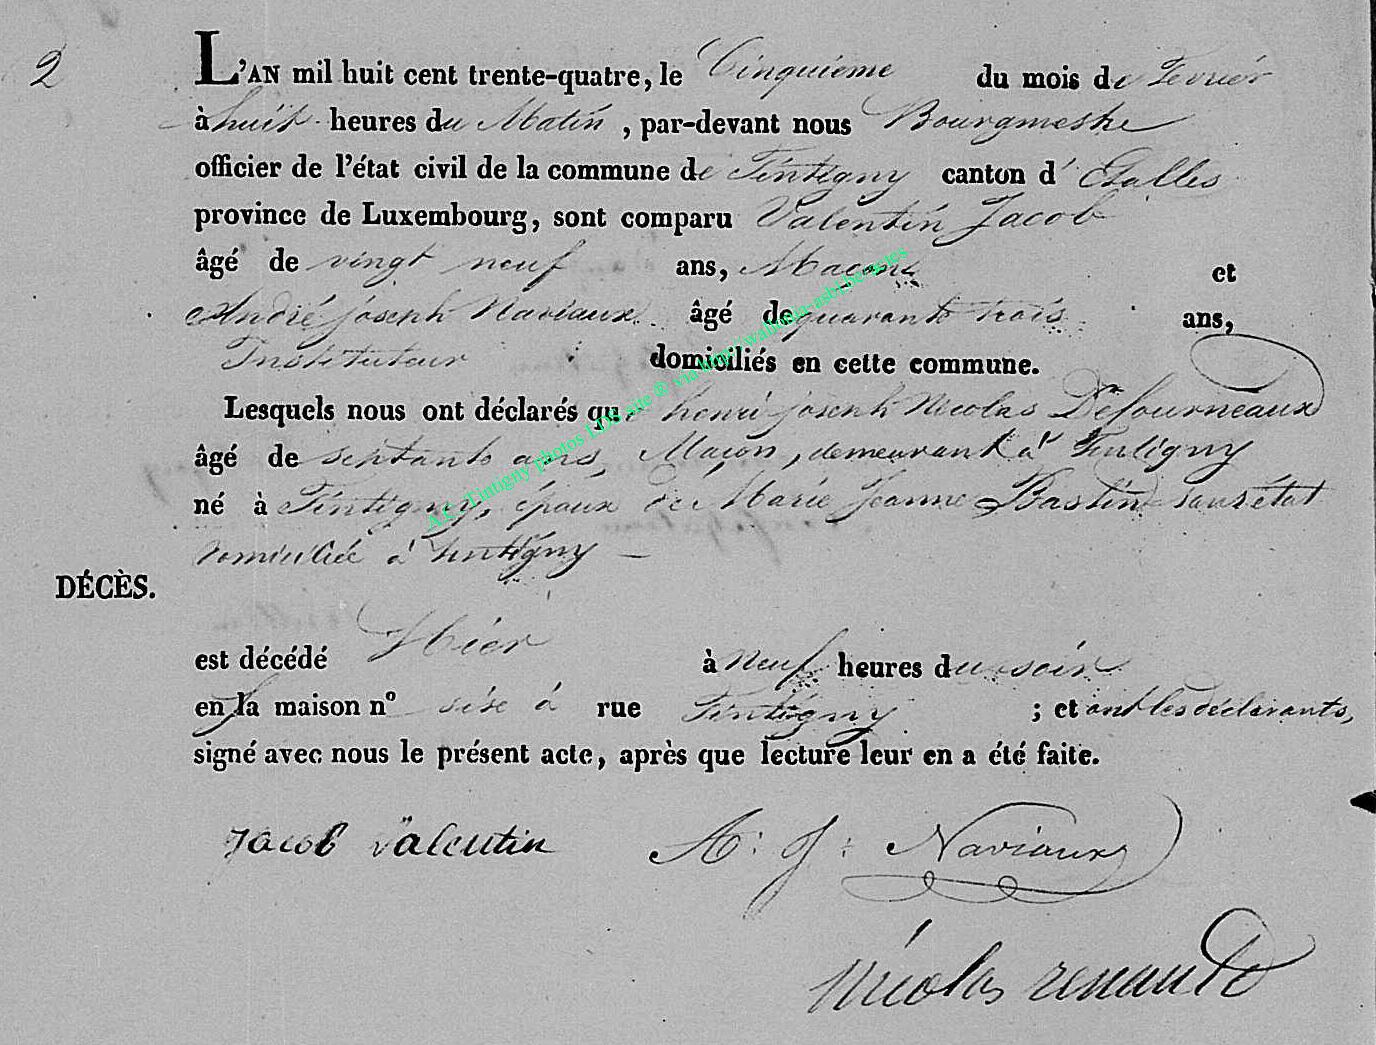 2
L'AN mil huit cent trente-quatre, le Cinquieme du mois de Fevrier
à huit heures du Matin, par-devant nous Bourgmestre
officier de l'état civil de la commune de Tintigny canton d' Etalles
province de Luxembourg, sont comparu Valentin Jacob
âgé de vingt neuf ans, Maçon et
André joseph Naviaux âgé de quarante trois ans,
Instituteur domiciliés en cette commune.
Lesquels nous ont déclarés que henri joseph Nicolas Defourneaux
âgé de septante ans, Maçon, demeurant à Tintigny
né à Tintigny, époux de Marie Jeanne Bastin sans état
domiciliée à tintigny —
DÉCÈS.
est décédé Hier à Neuf heures du soir
en la maison nº sise à rue Tintigny ; et ont les déclarants,
signé avec nous le présent acte, après que lecture leur en a été faite.
Jacob valentin A: J: Naviaux
nicolas renauld
A.C. Tintigny photos LDS site ® via http://wallonia-asbl.be/actes